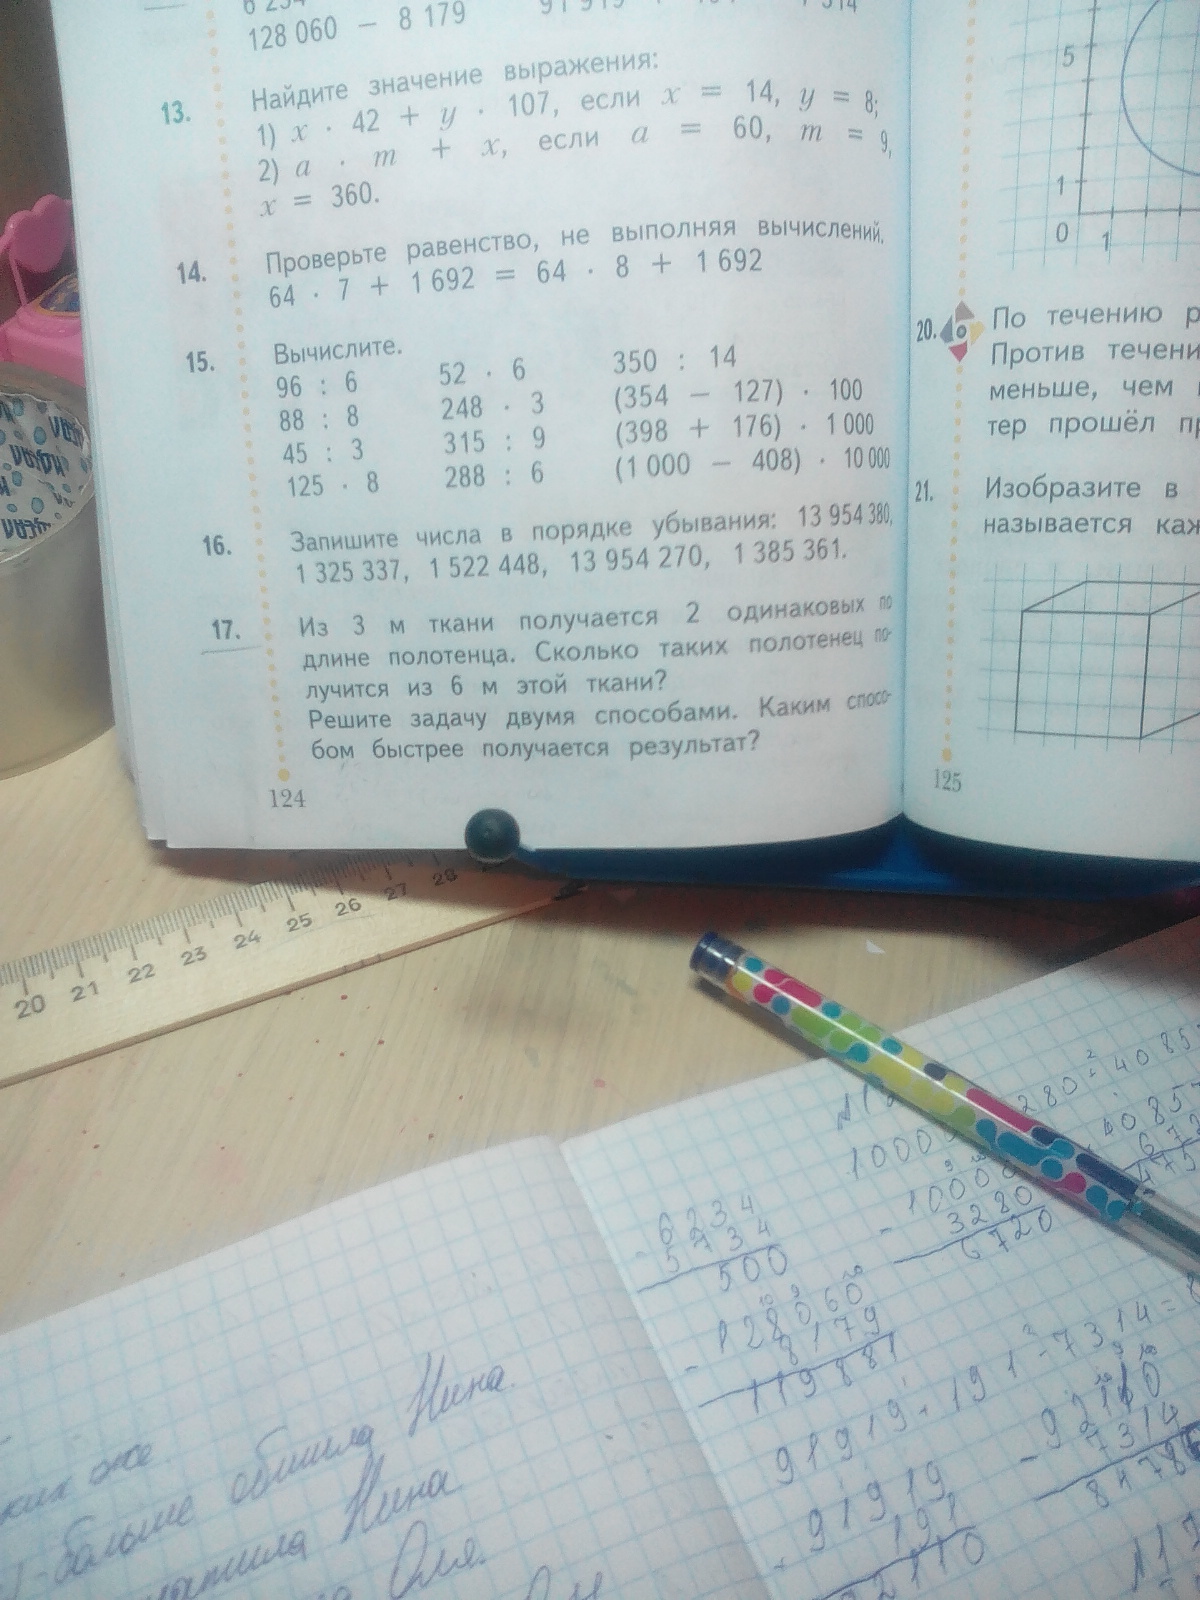 128 060 − 8 179
13. Найдите значение выражения:
1) x · 42 + y · 107, если x = 14, y = 8;
2) a · m + x, если a = 60, m = 9,
x = 360.
14. Проверьте равенство, не выполняя вычислений.
64 · 7 + 1 692 = 64 · 8 + 1 692
15. Вычислите.
96 : 6 52 · 6 350 : 14
88 : 8 248 · 3 (354 − 127) · 100
45 : 3 315 : 9 (398 + 176) · 1 000
125 · 8 288 : 6 (1 000 − 408) · 10 000
16. Запишите числа в порядке убывания: 13 954 380,
1 325 337, 1 522 448, 13 954 270, 1 385 361.
17. Из 3 м ткани получается 2 одинаковых по
длине полотенца. Сколько таких полотенец по-
лучится из 6 м этой ткани?
Решите задачу двумя способами. Каким спосо-
бом быстрее получается результат?
124
5
1
0 1
20. По течению р
Против течени
меньше, чем
тер прошёл пр
21. Изобразите в
называется каж
125
20 21 22 23 24 25 26 27 28
6234
5734
500
128060
8179
119881
10000
3280
6720
91919 + 191 - 7314 =
91919
191
92110
7314
больше обшила Нина
Нина
Оля.